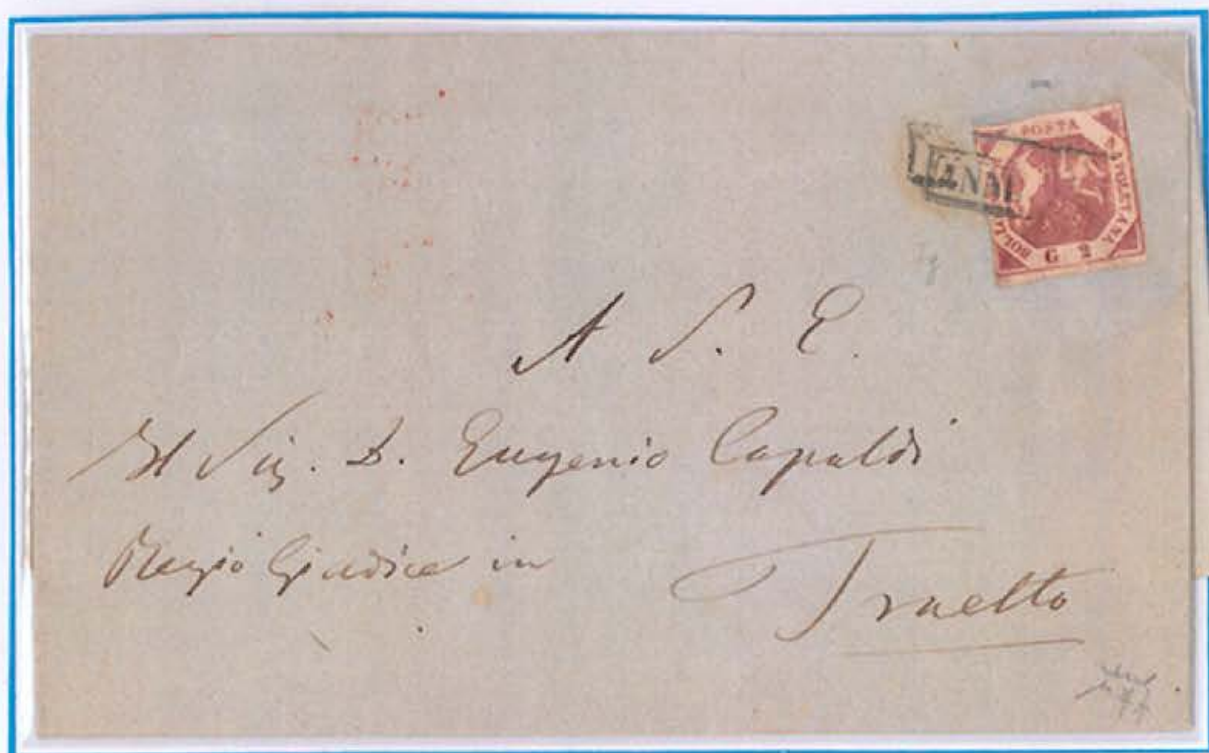 BOLLO POSTA NAPOLETANA
G 2
A S. E.
Il Sig. D. Eugenio Capaldi
Regio Giudice in
Traetto